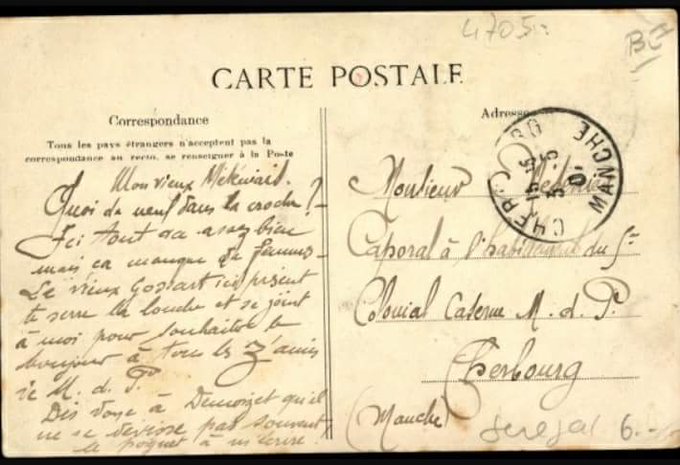 4705.-
CARTE POSTALE
Correspondance
Tous les pays étrangers n'acceptent pas la
correspondance au recto, se renseigner à la Poste
Mon vieux
Quoi de neuf dans la croche ?
Ici tout va assez bien
mais ça manque de femmes
Le vieux Gossart ici présent
te serre la louche et se joint
à moi pour souhaiter le
bonjour à tous les z'amis
M. d. P.
Dis donc à qu'il
ne se pas souvent
le poignet à m'écrire !
Adresse
CHERBOURG
MANCHE
Monsieur
Caporal à l'habillement du 5e
Colonial Caserne M. d. P.
Cherbourg
(Manche)
6.-